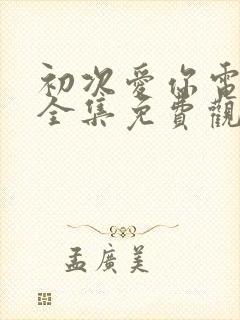 初次愛你電
全集免費觀
孟廣美